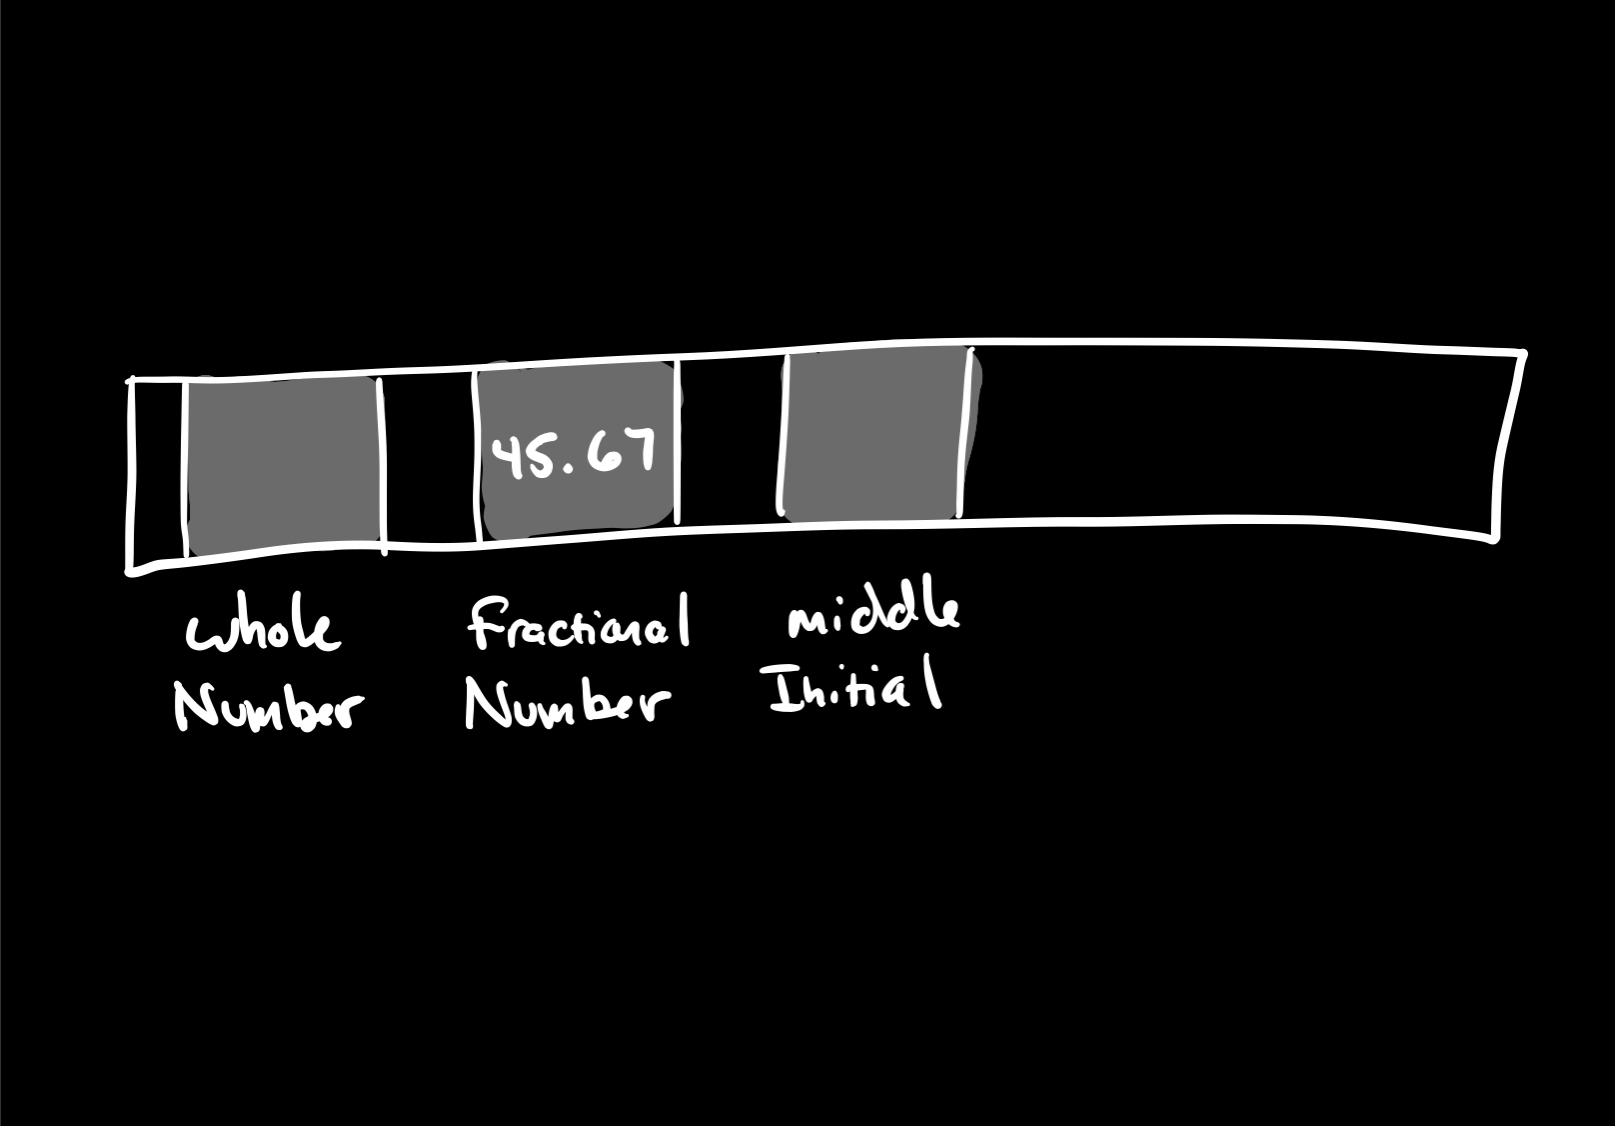 45.67
whole
Number
fractional
Number
middle
Initial